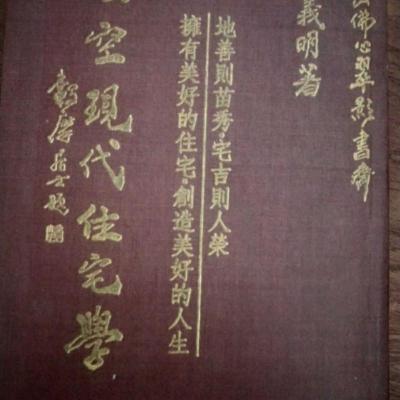 佛心翠影書齋
義明著
地善則苗秀·宅吉則人榮
擁有美好的住宅·創造美好的人生
空現代住宅學
居士題